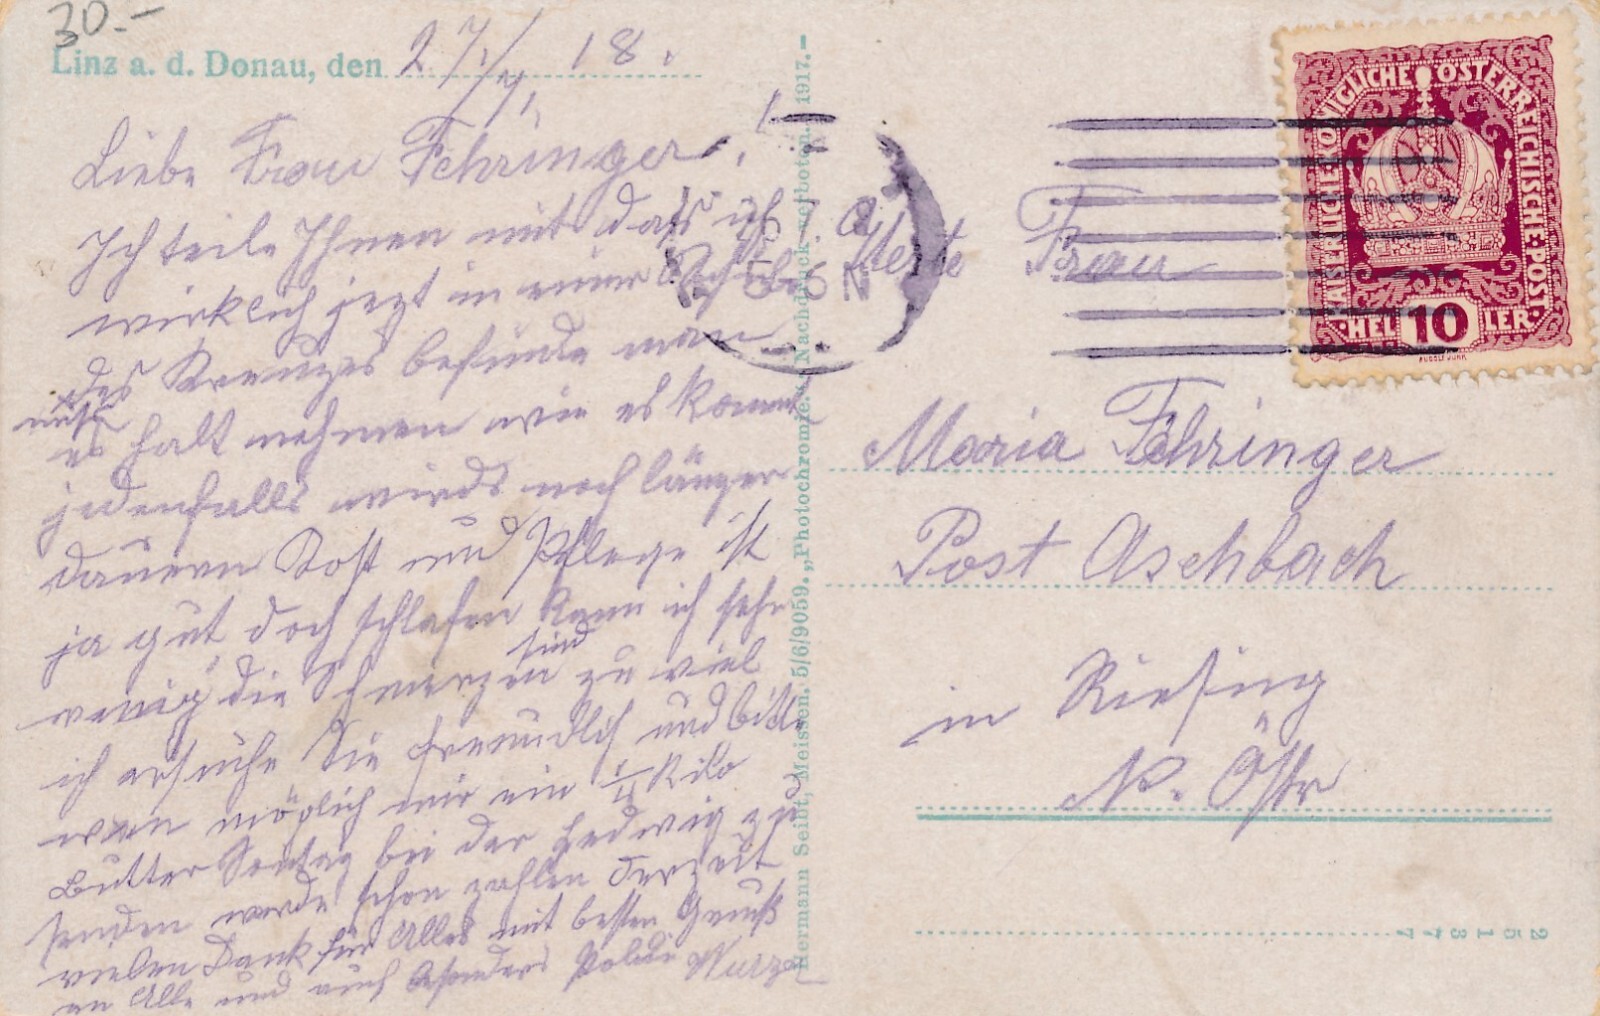 30.-
Linz a. d. Donau, den 27./VI. 18.
Liebe Frau Fehringer!
Ich teile Ihnen mit daß ich
wirklich jezt in einer
des Kreuzes befinde man
muß
es halt nehmen wie es kommt
jedenfalls wirds noch länger
dauern Kost und Pflege ist
ja gut, doch schlafen kann ich sehr
sind
wenig die Schmerzen zu viel
ich ersuche Sie freundlich und bitte
wen möglich mir ein ½ Kilo
Butter Sontag bei der Hedwig zu
senden werde schon zahlen derzeit
vielen Dank für Alles mit besten Gruß
an Alle und auch besonders Poldi Wurzer
Hermann Seibt, Meissen. 5/6/9059. „Photochromie.“ Nachdruck verboten. 1917.-
5-6 N
KAISERLICHE KÖNIGLICHE ÖSTERREICHISCHE POST
HEL 10 LER
Werte Frau
Maria Fehringer
Post Aschbach
in Riesing
N. Östr